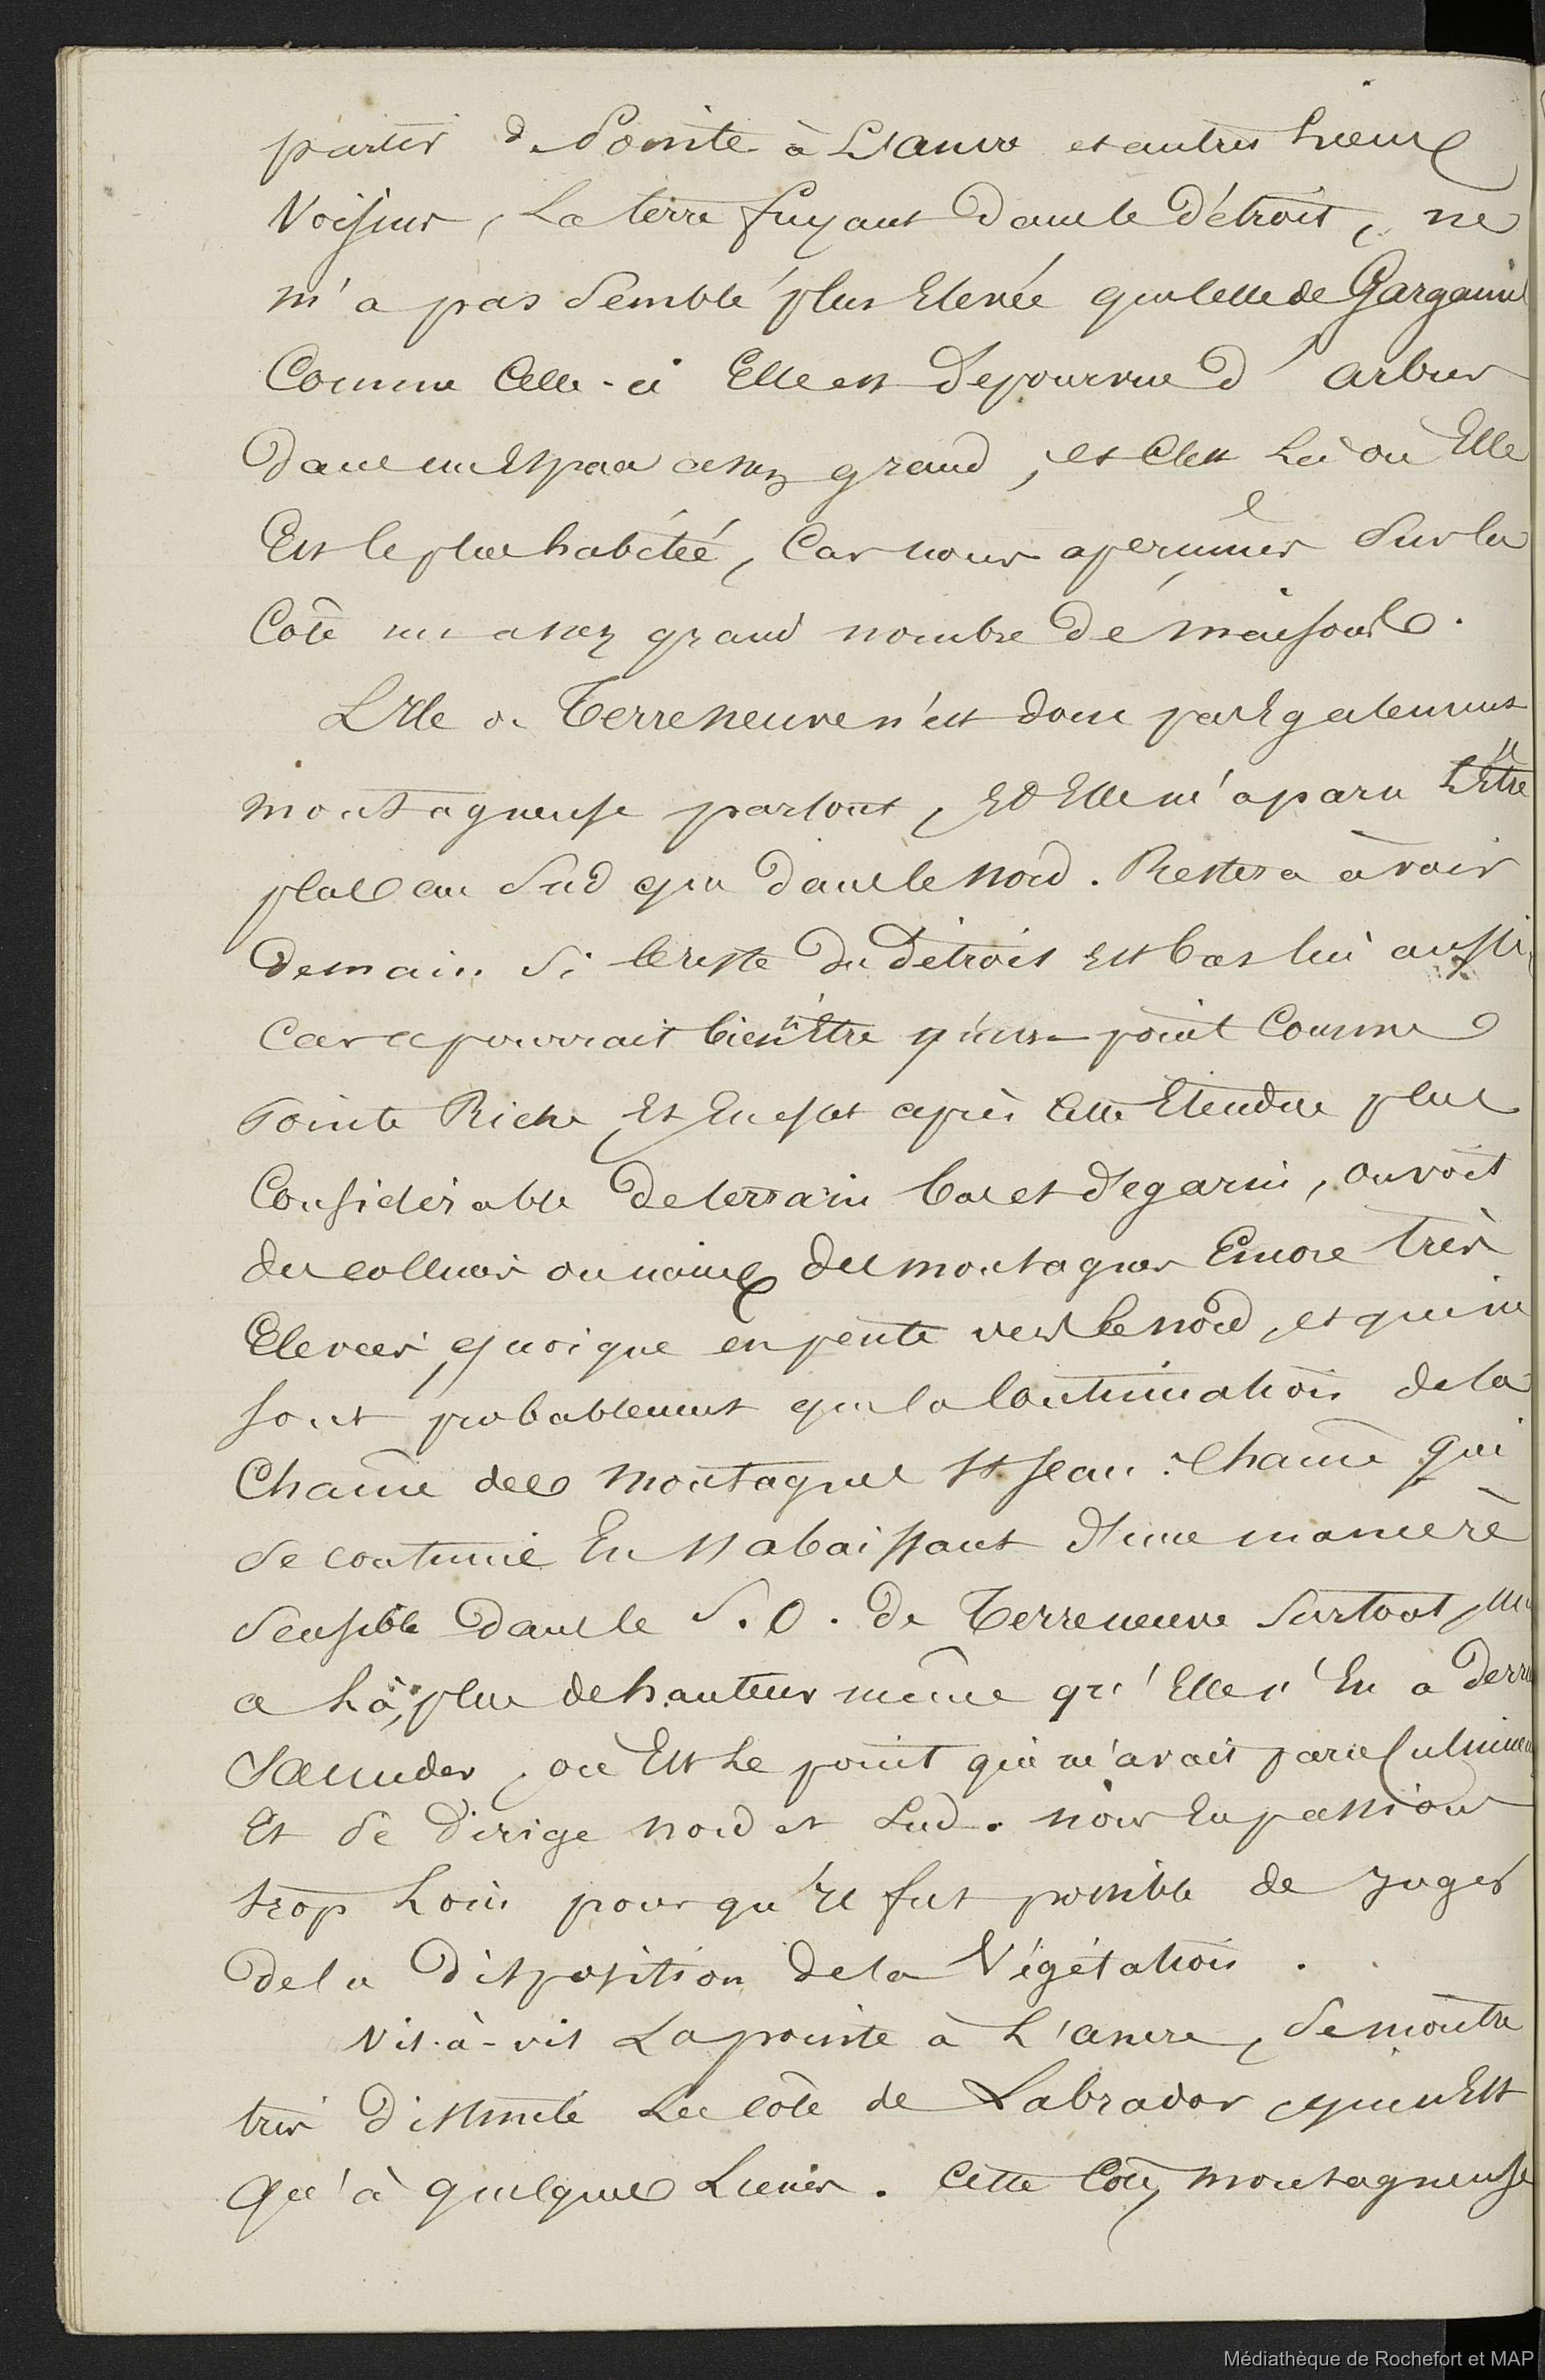 partir de Pointe à L'ancre et autres Lieux
Voisins, La terre fuyant dans le Détroit, ne
m'a pas Semblé plus Elevée que celle de Gargamel
Comme Celle-ci Elle est Depourvue d'arbres
dans un Espace assez grand, et C'est Là où Elle
Est le plus habitéé, Car nous aperçumes Sur la
Côte un assez grand nombre de maisons.
L'Ile de Terreneuve n'est donc pas Egalement
montagneuse partout, Et Elle m'a paru L'Etre
plus au Sud que dans le Nord. Restera à voir
Demain Si le reste du Détroit Est bas lui aussi,
Car ce pourrait bien n'Etre qu'un point Comme
Pointe Riche Et En effet après Cette Etendue plus
Considérable de terrain bas et dégarni, on voit
des collines ou mieux des montagnes Encore très
Elevées quoique en pente vers le nord, et qui ne
sont probablement que la Continuation de la
Chaine des Montagnes St Jean. Chaine qui
se continue En s'abaissant d'une manière
Sensible dans le S.O. de Terreneuve Surtout,
a Là, plus de hauteur même qu'Elle n'En a
Saunder, où Est Le point qui m'avait paru
Et Se Dirige nord et Sud. nous En passions
trop Loin pour qu'Il fut possible de Juger
de la Disposition de la Végétation.
Vis-à-vis La pointe à L'ancre, Se montre
très Distincte La côte de Labrador, qui n'Est
Qu'à quelques Lieues. Cette Côte montagneuse
Médiathèque de Rochefort et MAP